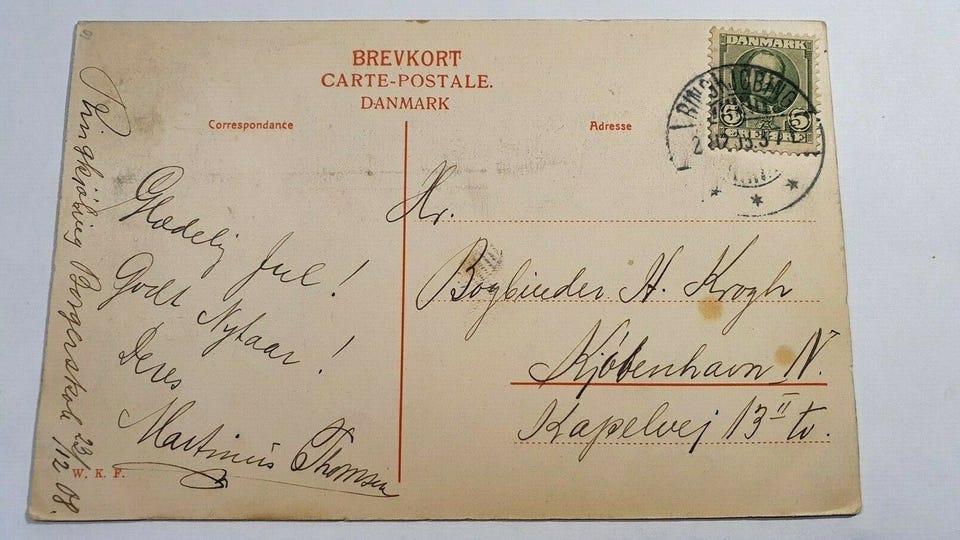 BREVKORT
CARTE-POSTALE.
DANMARK
Correspondance
Adresse
DANMARK
5 5
ØRE ØRE
RINGKJØBING
Ringkjøbing Borgerskole 23/12 08.
Glædelig Jul!
Godt Nytaar!
Deres
Martinus Thomsen
Hr.
Bogbinder H. Krogh
Kjøbenhavn N.
Kapelvej 13 II tv.
W. K. F.